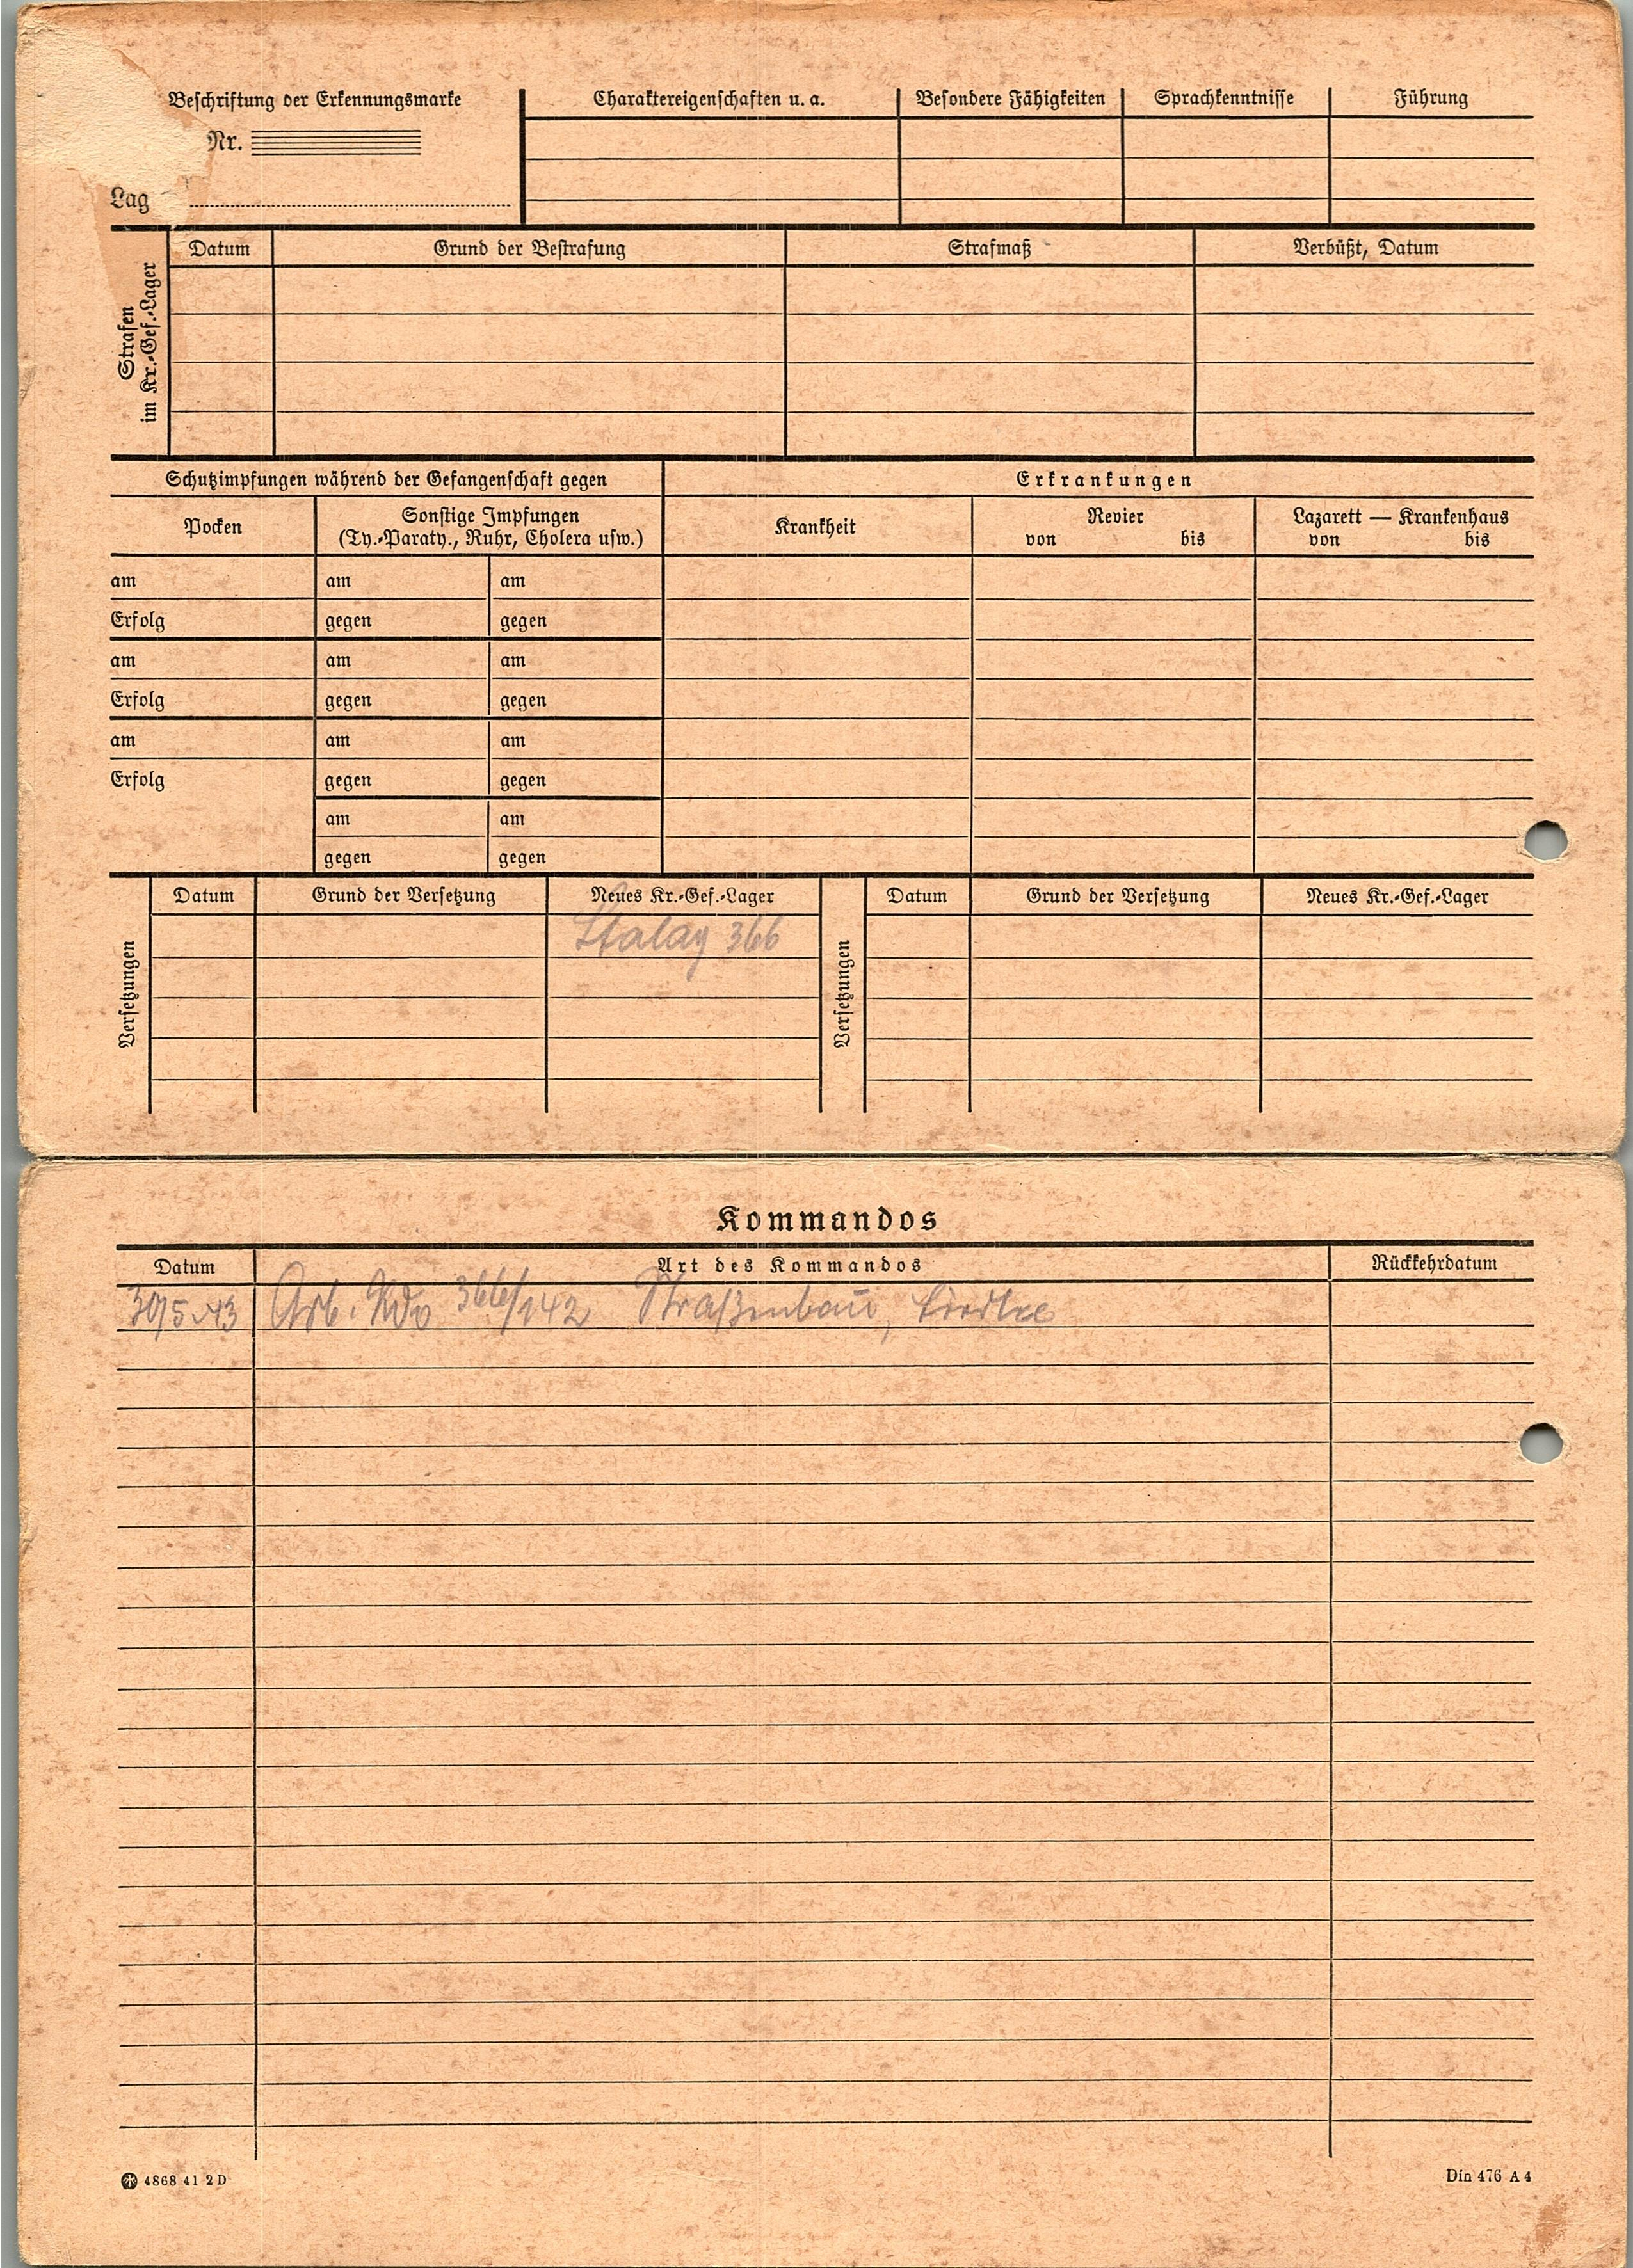 Beschriftung der Erkennungsmarke
Nr.
Lag
Charaktereigenschaften u. a.
Besondere Fähigkeiten
Sprachkenntnisse
Führung
Strafen
im Kr.-Gef.-Lager
Datum
Grund der Bestrafung
Strafmaß
Verbüßt, Datum
Schutzimpfungen während der Gefangenschaft gegen
Erkrankungen
Pocken
Sonstige Impfungen
(Ty.-Paraty., Ruhr, Cholera usw.)
Krankheit
Revier
von bis
Lazarett — Krankenhaus
von bis
am am am
Erfolg gegen gegen
am am am
Erfolg gegen gegen
am am am
Erfolg gegen gegen
am am
gegen gegen
Versetzungen
Datum
Grund der Versetzung
Neues Kr.-Gef.-Lager
Stalag 366
Versetzungen
Datum
Grund der Versetzung
Neues Kr.-Gef.-Lager
Kommandos
Datum
Art des Kommandos
Rückkehrdatum
Arb. Kdo 366/142 Straßenbau,
4868 41 2D
Din 476 A 4